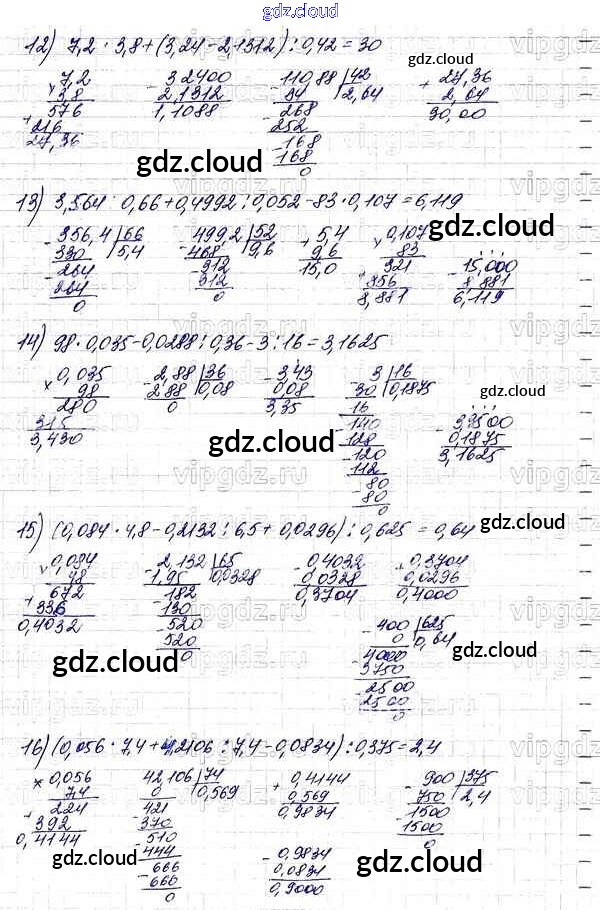 gdz.cloud
12) 7,2 · 3,8 + (3,24 - 2,1312) : 0,42 = 30
gdz.cloud
7,2 - 32400 - 110,88 | 42 + 27,36
× 3,8 2,1312 84 | 2,64 2,64
576 1,1088 - 268 30,00
+ 216 252
27,36 - 168
168
0
gdz.cloud gdz.cloud
13) 3,564 : 0,66 + 0,4992 : 0,052 - 83 · 0,107 = 6,119
gdz.cloud
- 356,4 | 66 - 499,2 | 52 + 5,4 × 0,107 - 15,000
330 | 5,4 468 | 9,6 9,6 83 8,881
- 264 - 312 15,0 321 6,119
264 312 + 856
0 0 8,881
vipgdz.ru
14) 98 · 0,035 - 0,0288 : 0,36 - 3 : 16 = 3,1625
× 0,035 - 2,88 | 36 - 3,43 3 | 16 gdz.cloud
98 2 88 | 0,08 0,08 - 30 | 0,1875 - 3,3500
280 0 3,35 16 0,1875
315 - 140 3,1625
3,430 128
- 120
112
- 80
80
0
gdz.cloud gdz.cloud
vipgdz.ru
15) (0,084 · 4,8 - 0,2132 : 6,5 + 0,0296) : 0,625 = 0,64
× 0,084 - 2,132 | 65 - 0,4032 + 0,3704
48 1,95 | 0,0328 0,0328 0,0296
672 182 0,3704 0,4000
+ 336 - 130
0,4032 - 520 - 400 | 625
520 0 | 0,64
0 - 4000
3750
- 2500
2500
0
gdz.cloud gdz.cloud gdz.cloud
vipgdz.ru
16) (0,056 · 7,4 + 4,2106 : 7,4 - 0,0834) : 0,375 = 2,4
× 0,056 42,106 | 74 + 0,4144 - 900 | 375
7,4 0 | 0,569 0,569 750 | 2,4
224 421 0,9834 - 1500
+ 392 - 370 1500
0,4144 - 510 0
444 - 0,9834
- 666 0,0834
666 0,9000
0
gdz.cloud gdz.cloud